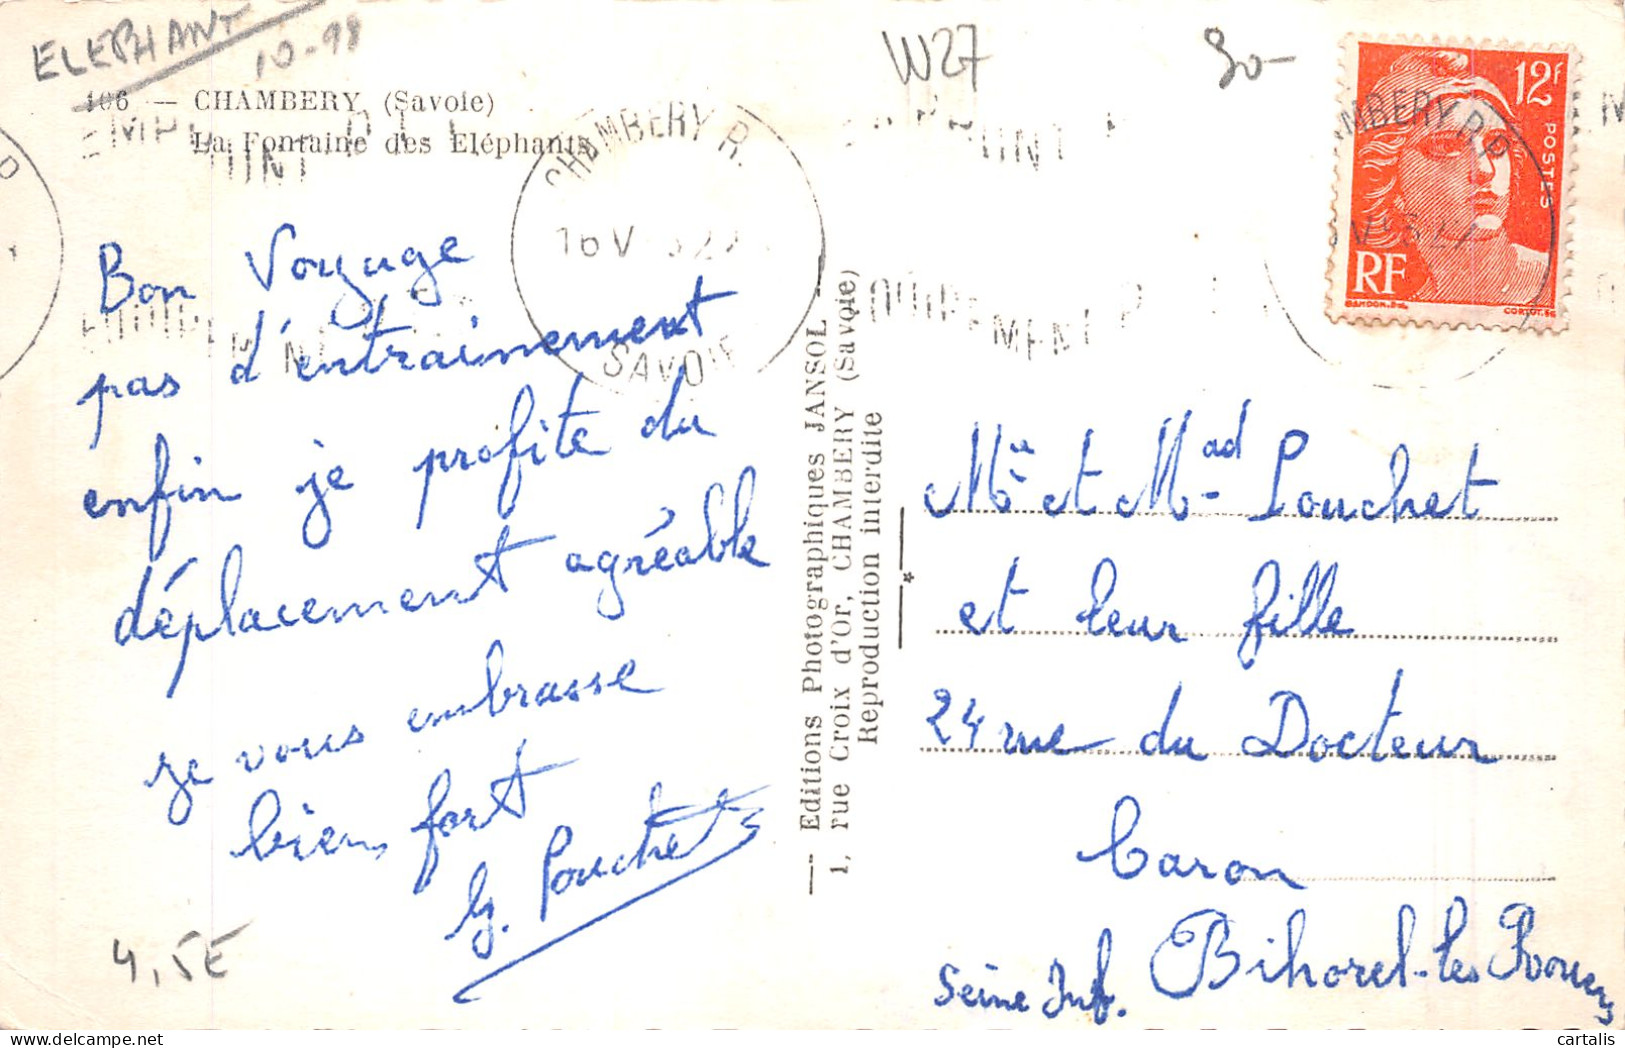 ELEPHANT
10-98
W27
30-
106 — CHAMBERY (Savoie)
La Fontaine des Eléphants
CHAMBERY R.
16 V
SAVOIE
12F
POSTES
RF
MBERY R.P
Bon Voyage
pas d'entrainement
enfin je profite du
déplacement agréable
je vous embrasse
bien fort
G. Pouchet
4,5E
— Editions Photographiques JANSOL —
1, rue Croix d'Or, CHAMBERY (Savoie)
Reproduction interdite
Mr et Mad Pouchet
et leur fille
24 rue du Docteur
Caron
Bihorel-les Rouen
Seine Inf.
cartalis